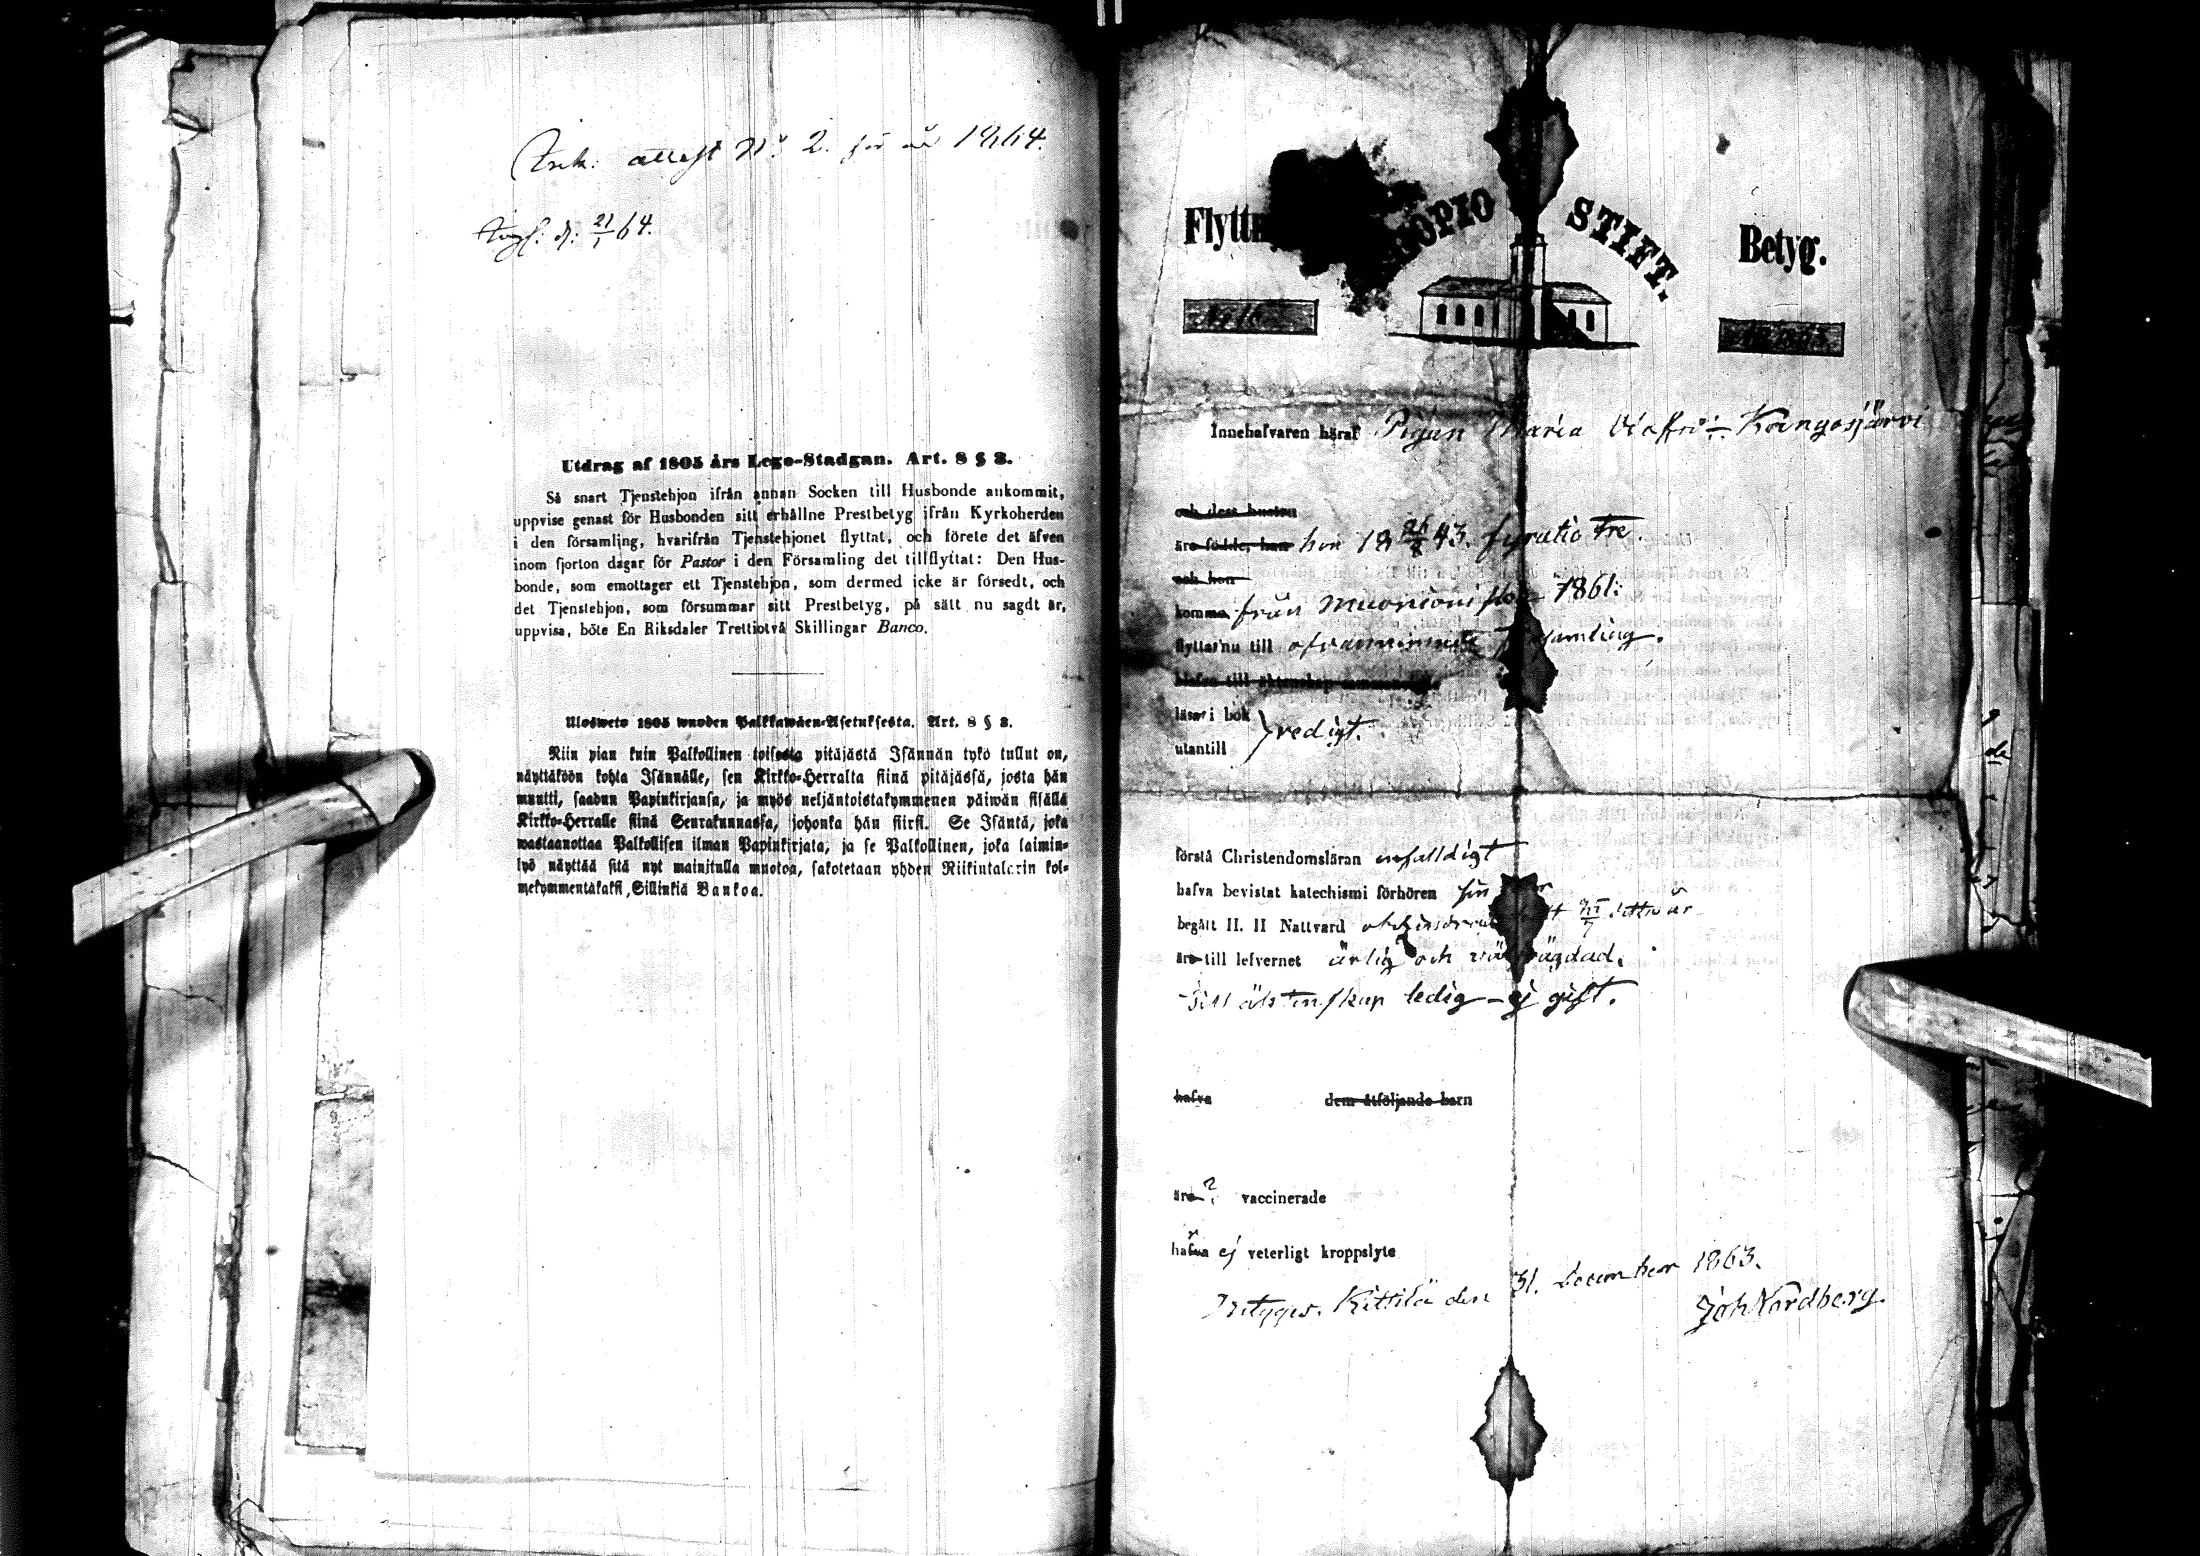 attest No 2. för år 1864.
d: 21/1 64.
Utdrag af 1805 års Lego-Stadgan. Art. 8 § 3.
Så snart Tjenstehjon ifrån annan Socken till Husbonde ankommit,
uppvise genast för Husbonden sitt erhållne Prestbetyg ifrån Kyrkoherden
i den församling, hvarifrån Tjenstehjonet flyttat, och förete det äfven
inom fjorton dagar för Pastor i den Församling det tillflyttat: Den Hus-
bonde, som emottager ett Tjenstehjon, som dermed icke är försedt, och
det Tjenstehjon, som försummar sitt Prestbetyg, på sätt nu sagdt är,
uppvisa, böte En Riksdaler Trettiotvå Skillingar Banco.
Ulosweto 1805 wuoden Palkkawäen-Asetuksesta. Art. 8 § 3.
Niin pian kuin Palkollinen toisesta pitäjästä Isännän tykö tullut on,
näyttäköön kohta Isännälle, sen Kirkko-Herralta siinä pitäjässä, josta hän
muutti, saadun Papinkirjansa, ja myös neljäntoistakymmenen päiwän sisällä
Kirkko-Herralle siinä Seurakunnassa, johonka hän siirsi. Se Isäntä, joka
wastaanottaa Palkollisen ilman Papinkirjata, ja se Palkollinen, joka laimin-
lyö näyttää sitä nyt mainitulla muotoa, sakotetaan yhden Riikintalarin kol-
mekymmentäkaksi Sillinkiä Bankoa.
Flytt OPIO STIFT. Betyg.
No 16 1863.
Innehafvaren häraf Pigan Maria Kangosjärvi
och dess hustru
äro födde, han hon 18 26/8 43. fyratio tre.
och hon
komma från Muonioniska 1861:
flyttar nu till ofvannämnde församling.
hafva till äktenskap
läser i bok
utantill } redigt.
förstå Christendomsläran enfalldigt
hafva bevistat katechismi förhören
begått H. H Nattvard detta år
äro till lefvernet ärlig och
Till äktenskap ledig - ej gift.
hafva dem åtföljande barn
äro ? vaccinerade
hafva ej veterligt kroppslyte
Betygas. Kittilä den 31. December 1863.
Joh Nordberg.